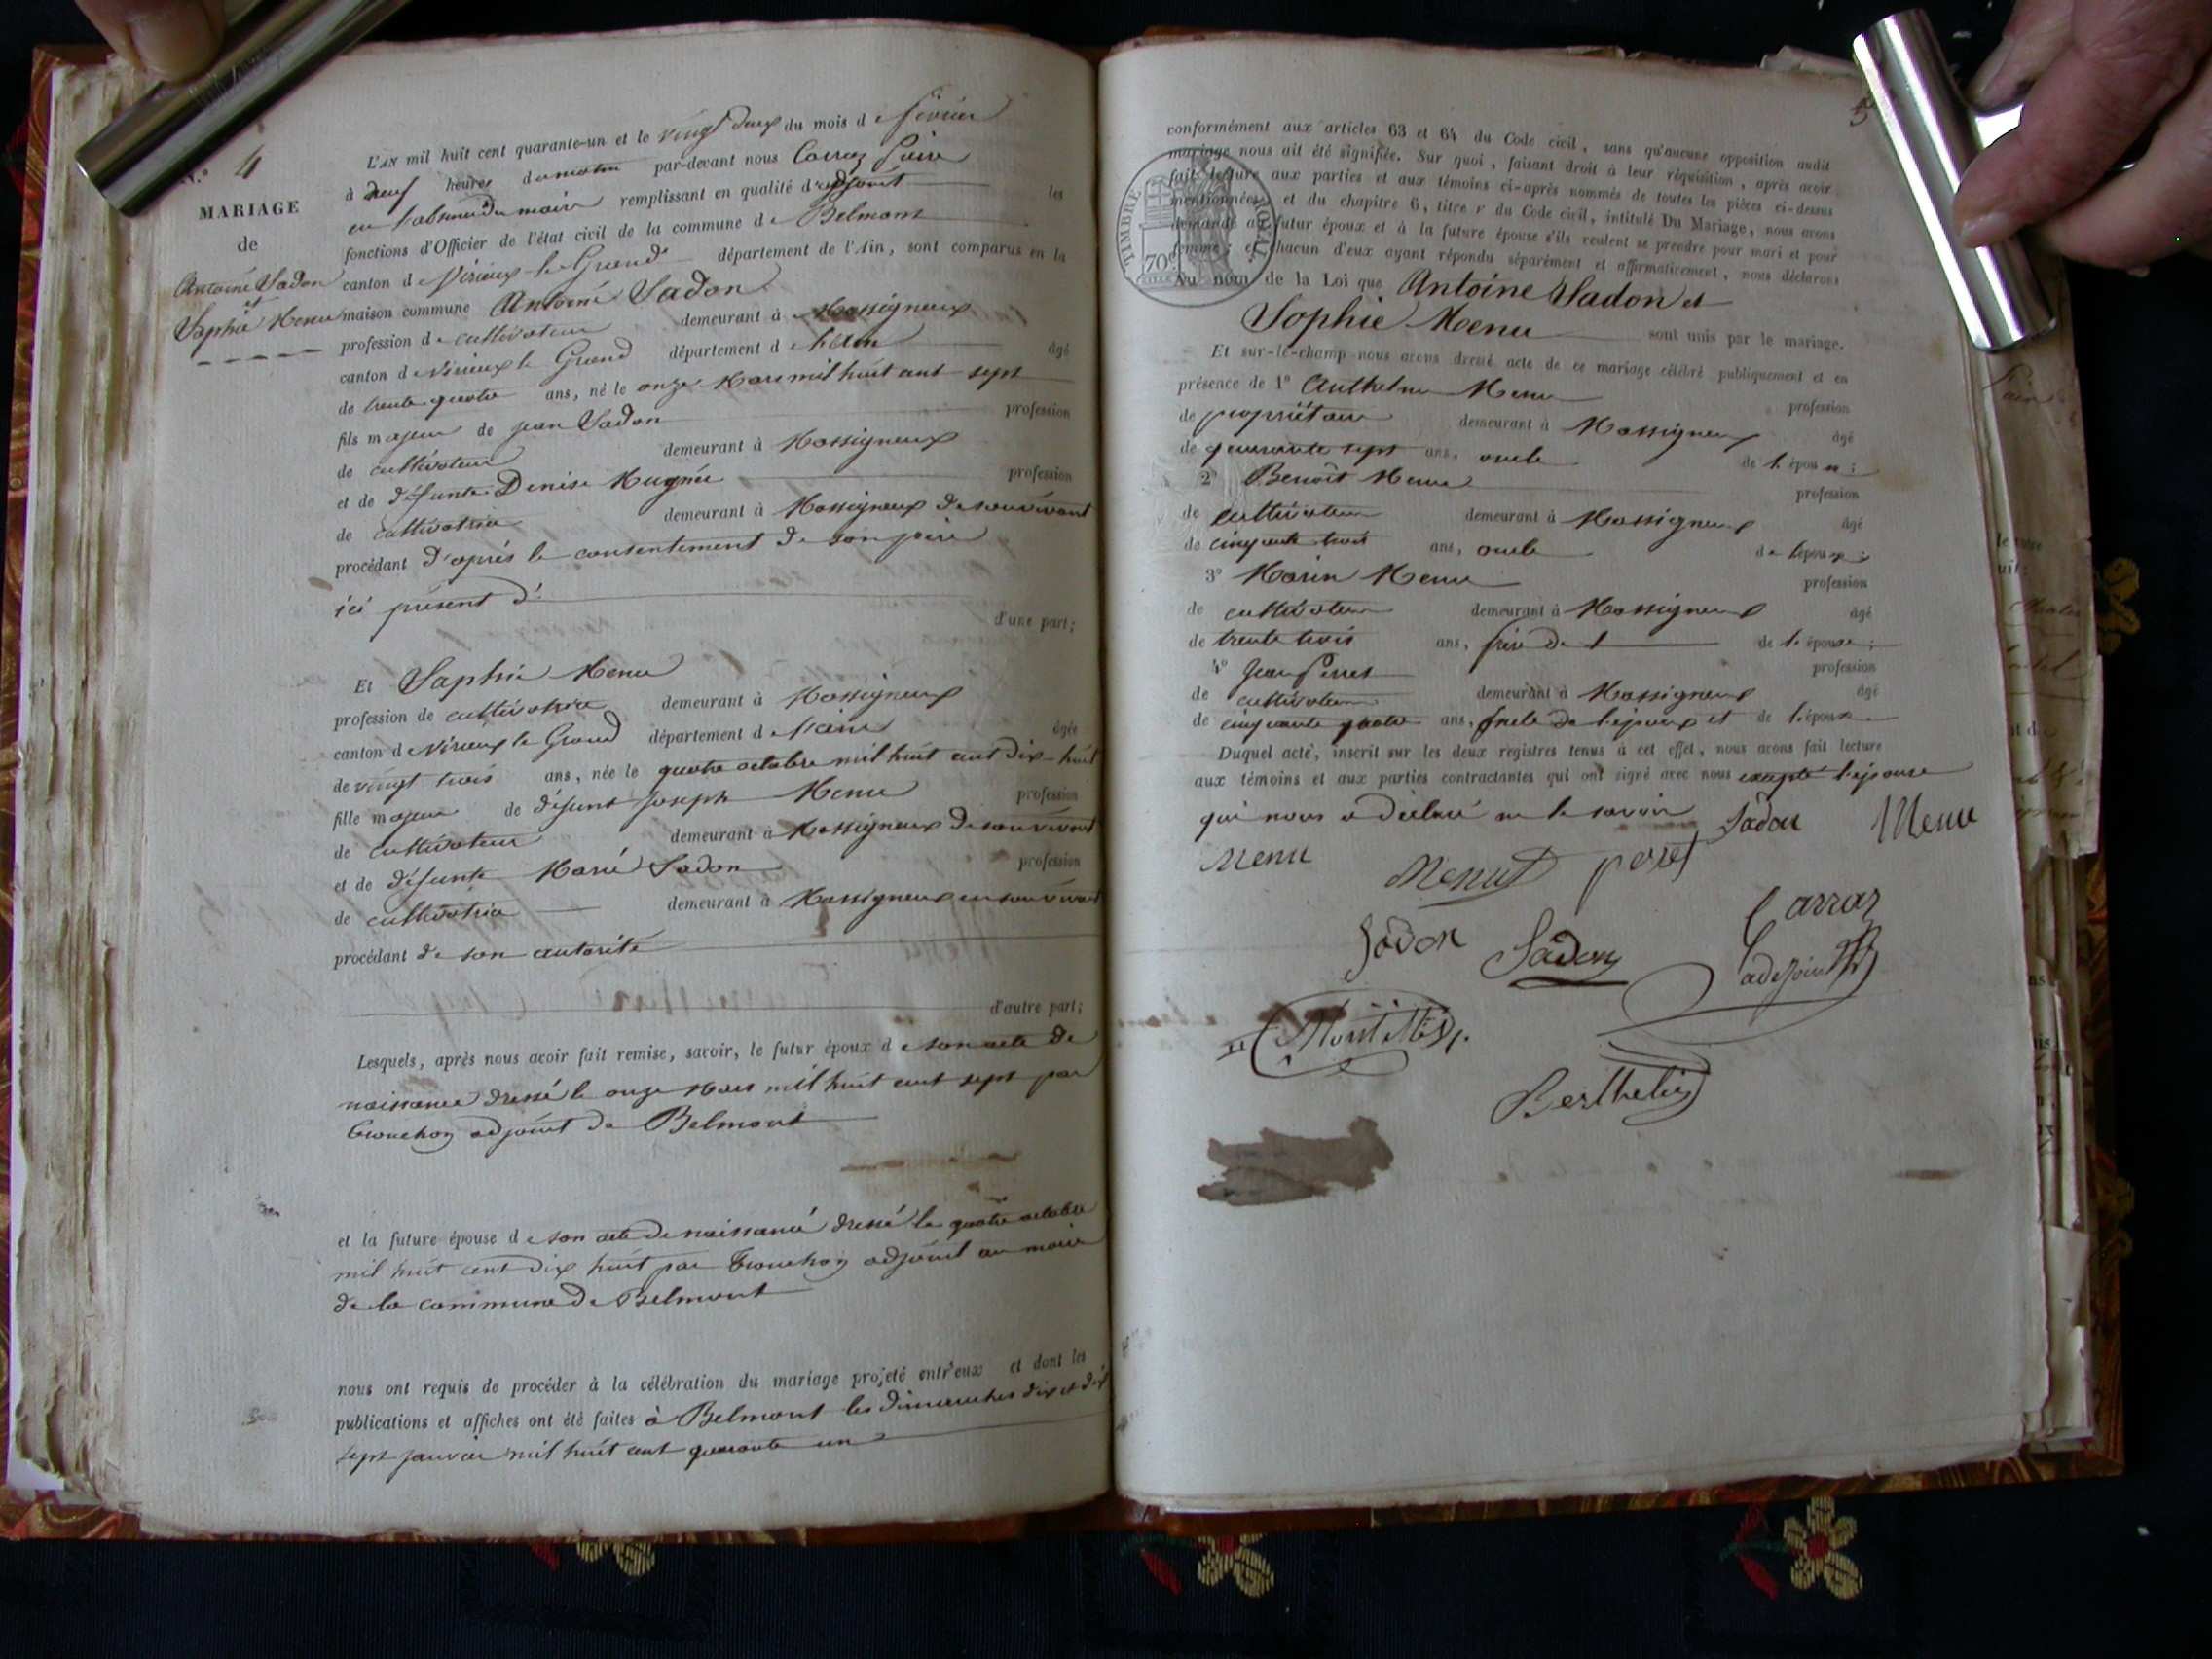 N.° 4
MARIAGE
de
Antoine Sadon
et
Sophie Menu
L'AN mil huit cent quarante-un et le vingt deux du mois de février
à neuf heures du matin par-devant nous Carraz
en l'absence du maire remplissant en qualité d'adjoint les
fonctions d'Officier de l'état civil de la commune de Belmont
canton de Virieux le Grand département de l'Ain, sont comparus en la
maison commune Antoine Sadon
profession de cultivateur demeurant à Massigneux
canton de Virieux le Grand département de l'ain âgé
de trente quatre ans, né le onze Mars mil huit cent sept
fils majeur de jean Sadon profession
de cultivateur demeurant à Massigneux
et de défunte Denise Mugnier profession
de cultivatrice demeurant à Massigneux de son vivant
procédant d'après le consentement de son père
ici présent d'
d'une part;
Et Sophie Menu
profession de cultivatrice demeurant à Massigneux
canton de Virieux le Grand département de l'ain âgée
de vingt trois ans, née le quatre octobre mil huit cent dix-huit
fille majeur de défunt joseph Menu profession
de cultivateur demeurant à Massigneux de son vivant
et de défunte Marie Sadon profession
de cultivatrice demeurant à Massigneux en son vivant
procédant de son autorité
d'autre part;
Lesquels, après nous avoir fait remise, savoir, le futur époux de son acte de
naissance dressé le onze Mars mil huit cent sept par
Trouchon adjoint de Belmont
et la future épouse de son acte de naissance dressé le quatre octobre
mil huit cent dix huit par Trouchon adjoint au maire
de la commune de Belmont
nous ont requis de procéder à la célébration du mariage projeté entr'eux et dont les
publications et affiches ont été faites à Belmont les dimanches dix et dix
sept janvier mil huit cent quarante un
5
TIMBRE ROYAL
70c
conformément aux articles 63 et 64 du Code civil, sans qu'aucune opposition audit
mariage nous ait été signifiée. Sur quoi, faisant droit à leur réquisition, après avoir
fait lecture aux parties et aux témoins ci-après nommés de toutes les pièces ci-dessus
mentionnées, et du chapitre 6, titre v du Code civil, intitulé Du Mariage, nous avons
demandé au futur époux et à la future épouse s'ils veulent se prendre pour mari et pour
femme; et chacun d'eux ayant répondu séparément et affirmativement, nous déclarons
Au nom de la Loi que Antoine Sadon et
Sophie Menu sont unis par le mariage.
Et sur-le-champ nous avons dressé acte de ce mariage célébré publiquement et en
présence de 1° Anthelme Menu profession
de propriétaire demeurant à Massigneux âgé
de quarante sept ans, oncle de l'épouse;
2° Benoît Menu profession
de cultivateur demeurant à Massigneux âgé
de cinquante trois ans, oncle de l'épouse;
3° Marin Menu profession
de cultivateur demeurant à Massigneux âgé
de trente trois ans, frère de l de l'épouse;
4° Jean Perret profession
de cultivateur demeurant à Massigneux âgé
de cinquante quatre ans, oncle de l'époux et de l'épouse
Duquel acte, inscrit sur les deux registres tenus à cet effet, nous avons fait lecture
aux témoins et aux parties contractantes qui ont signé avec nous excepté l'épouse
qui nous a déclaré ne le savoir Sadon Menu
Menu Menu peret
Carraz
adejoint
Sadon Sadon
Berthelier